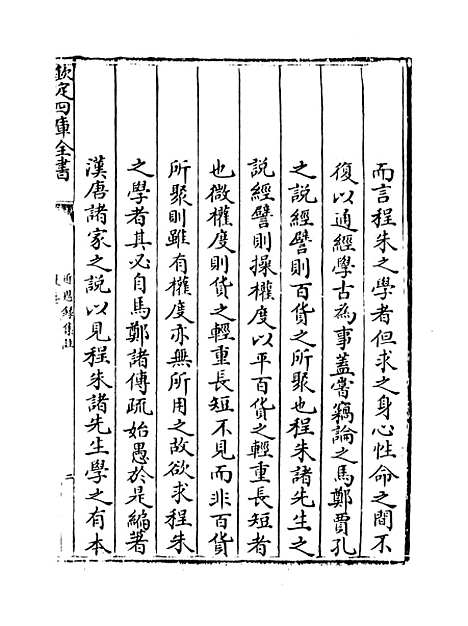 而言程朱之學者但求之身心性命之間不
復以通經學古為事蓋嘗竊論之馬鄭賈孔
之説經譬則百貨之所聚也程朱諸先生之
説經譬則操權度以平百貨之輕重長短者
也微權度則貨之輕重長短不見而非百貨
所聚則雖有權度亦無所用之故欲求程朱
之學者其必自馬鄭諸傳疏始愚於是編著
漢唐諸家之説以見程朱諸先生學之有本
欽定四庫全書
二